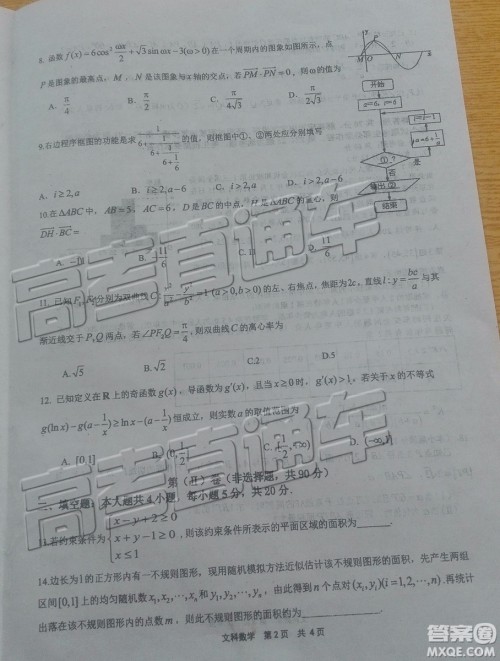 8. 函数 f(x)=6cos²(ωx/2)+√3sinωx-3(ω>0)在一个周期内的图象如图所示，点
P是图象的最高点，M、N是该图象与x轴的交点，若PM·PN=0，则ω的值为
A. π/4 B. π/2 C. π/(4√3) D. π/(2√3)
开始
9.右边程序框图的功能是求
的值，则框图中①、②两处应分别填写
A. i≥2,a B. i≥2,a-6 C. i>2,a D. i>2,a-6
10.在△ABC中，AB=5，AC=6，D是BC的中点，H是△ABC的
心，则
DH·BC=
否
是
输出②
结束
11. 已知
分别为双曲线C:
=1(a>0,b>0)的左、右焦点，焦距为2c，直线l:y=bc/a与其
渐近线交于P、Q两点，若∠PF₂Q=π/4，则双曲线C的离心率为
A.√5 B.√2 C.2 D.5
12. 已知定义在R上的奇函数g(x)，导函数为g'(x)，且当x≥0时，g'(x)>1，若关于x的不等式
恒成立，则实数a的取值范围为
A. [0,1]
(非选择题，共90分)
二、填空题：本大题共4小题，每小题5分，共20分.
13.若约束条件为{x-y+2≥0
x+y-1≥0
x≤1
，则该约束条件所表示的平面区域的面积为______.
14.边长为1的正方形内有一不规则图形，现用随机模拟方法近似估计该不规则图形的面积，先产生两组
区间[0,1]上的均匀随机数x₁,x₂,…,xₙ和y₁,y₂,…,yₙ，由此得到n个点对(xᵢ,yᵢ)(i=1,2,…,n).再统计
出落在该不规则图形内的点数m，则此不规则图形的面积约为______.
文科数学 第2页 共4页
高考直通车
高考直通车
答案圈
MXQE.COM